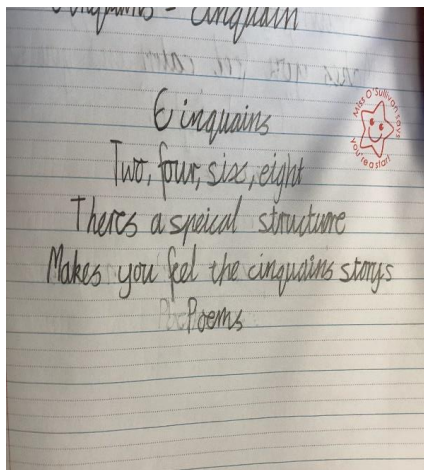 Cinquains - Cinquain
Cinquains
Two, four, six, eight
Theres a speical structure
Makes you feel the cinquains storys
Poems
Miss O'Sullivan says
you're a star!